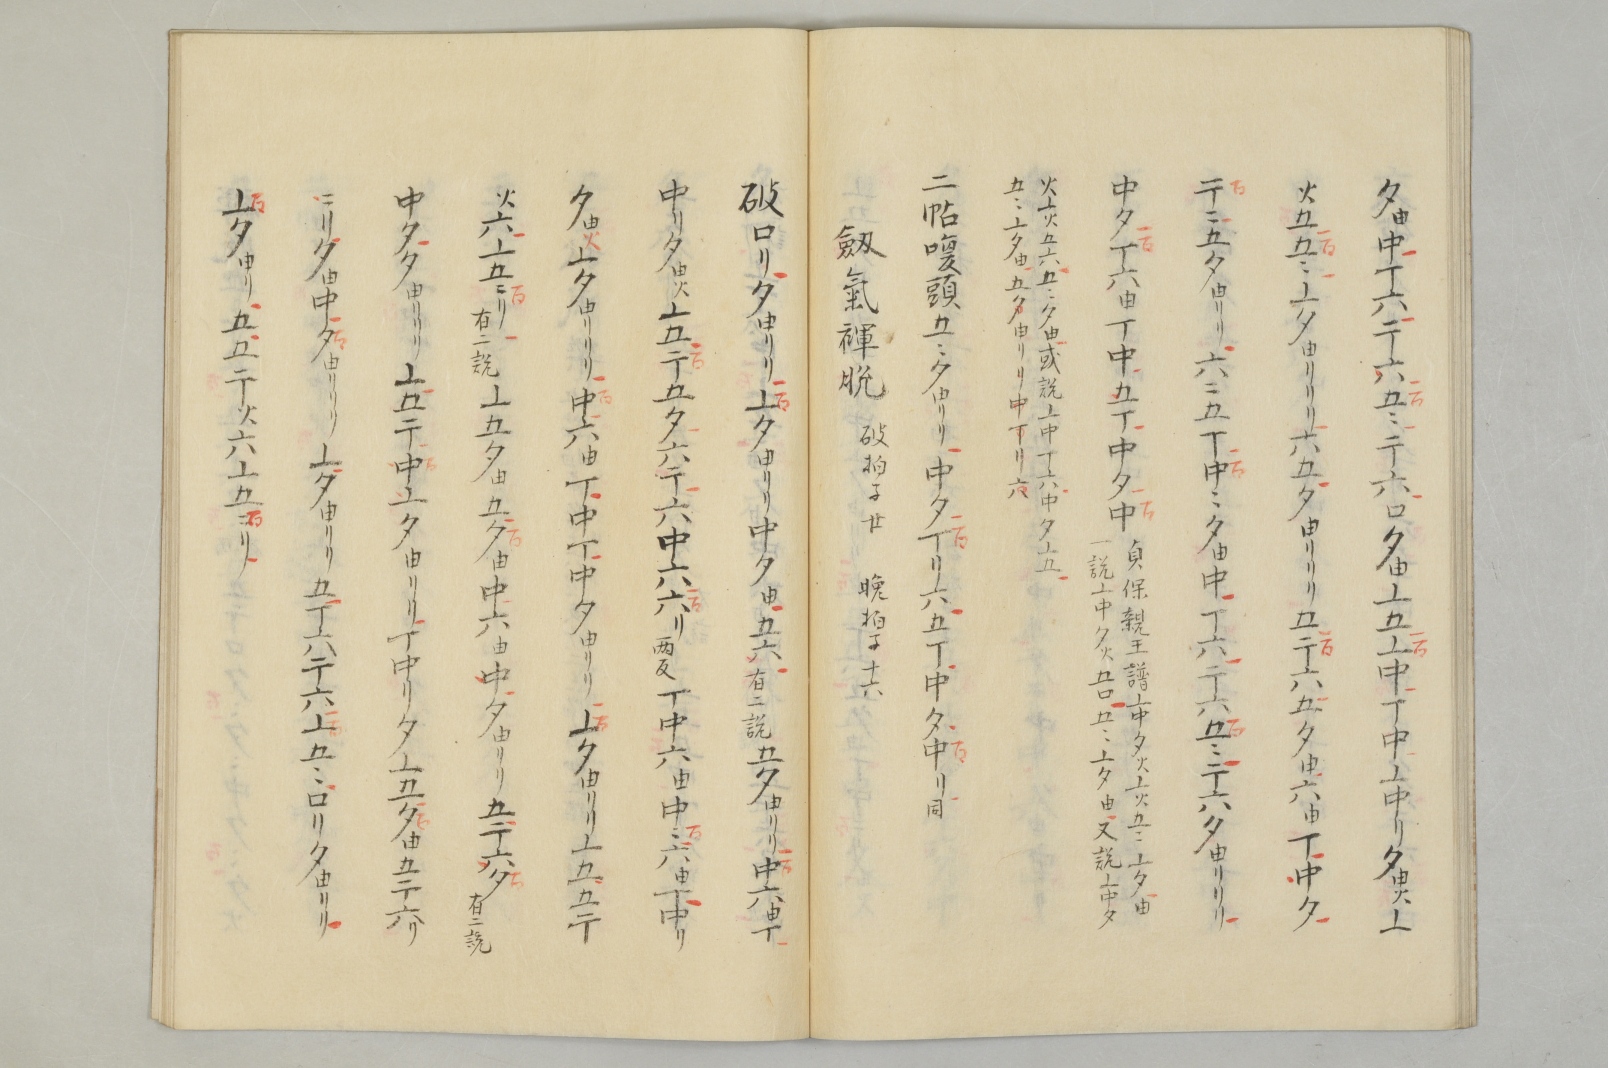 夕由中丁六〒六五ミ〒六口夕由丄五丄中丁中丄中リ夕由火丄
火五五ミ丄夕由リリリ六五夕由リリリ五〒六五夕由六由丁中夕
〒ニ五夕由リリ六ニ五丁中ミ夕由中丁六〒六五ミ〒六夕由リリリ
中夕丁六由丁中五丁中夕中
貞保親王譜丄中夕火丄火五ミ丄夕由
一説丄中夕火五口五ミ丄夕由又説丄中夕
火丄火五六五ミ夕由或説丄中丁六中夕丄五
五ミ丄夕由五夕由リリ中丁リ六
二帖嗄頭五ミ夕由リリ中夕丁リ六五丁中夕中リ同
劔氣褌脱 破拍子廿 晩拍子十六
破口リ夕由リリ丄夕由リリ中夕由五六有二説五夕由リリ中六由丁
中リ夕由火丄五〒五夕六〒六中六六リ両反丁中六由中ミ六由丁中リ
夕由火丄夕由リリリ中六由丁中丁中夕由リリ丄夕由リリ丄五五〒
火六丄五ニリ有二説丄五夕由五夕由中六由中夕由リリ五〒六夕有二説
中夕夕由リリリ丄五〒中丄夕由リリ丁中リ夕丄五夕由五〒六リ
ニリ夕由中夕由リリリ丄夕由リリ五丁六〒六丄五ミ口リ夕由リリ
丄夕由リ五五〒火六丄五ニリ